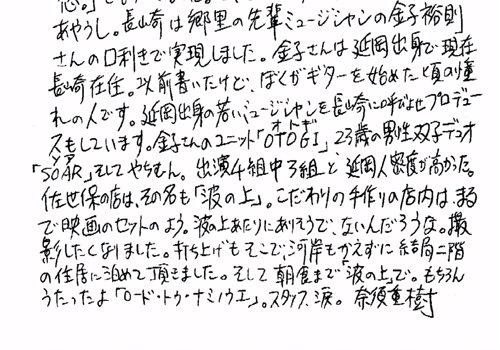 あやうし。長崎は郷里の先輩ミュージシャンの金子裕則
さんの口利きで実現しました。金子さんは延岡出身で現在
長崎在住。以前書いたけど、ぼくがギターを始めた頃の憧
れの人です。延岡出身の若いミュージシャンを長崎に呼びよせプロデュー
スもしています。金子さんのユニット「OTOGI」、23歳の男性双子デュオ
「SOAR」、そしてやちむん。出演4組中3組と延岡人密度が高かった。
佐世保の店は、その名も「波の上」。こだわりの手作りの店内は、まる
で映画のセットのよう。波の上あたりにありそうで、ないんだろうな。撮
影したくなりました。打ち上げもそこで、河岸もかえずに結局二階
の住居に泊めて頂きました。そして朝食まで「波の上」で。もちろん
うたったよ「ロード・トゥ・ナミノウエ」。スタッフ、涙。 奈須重樹